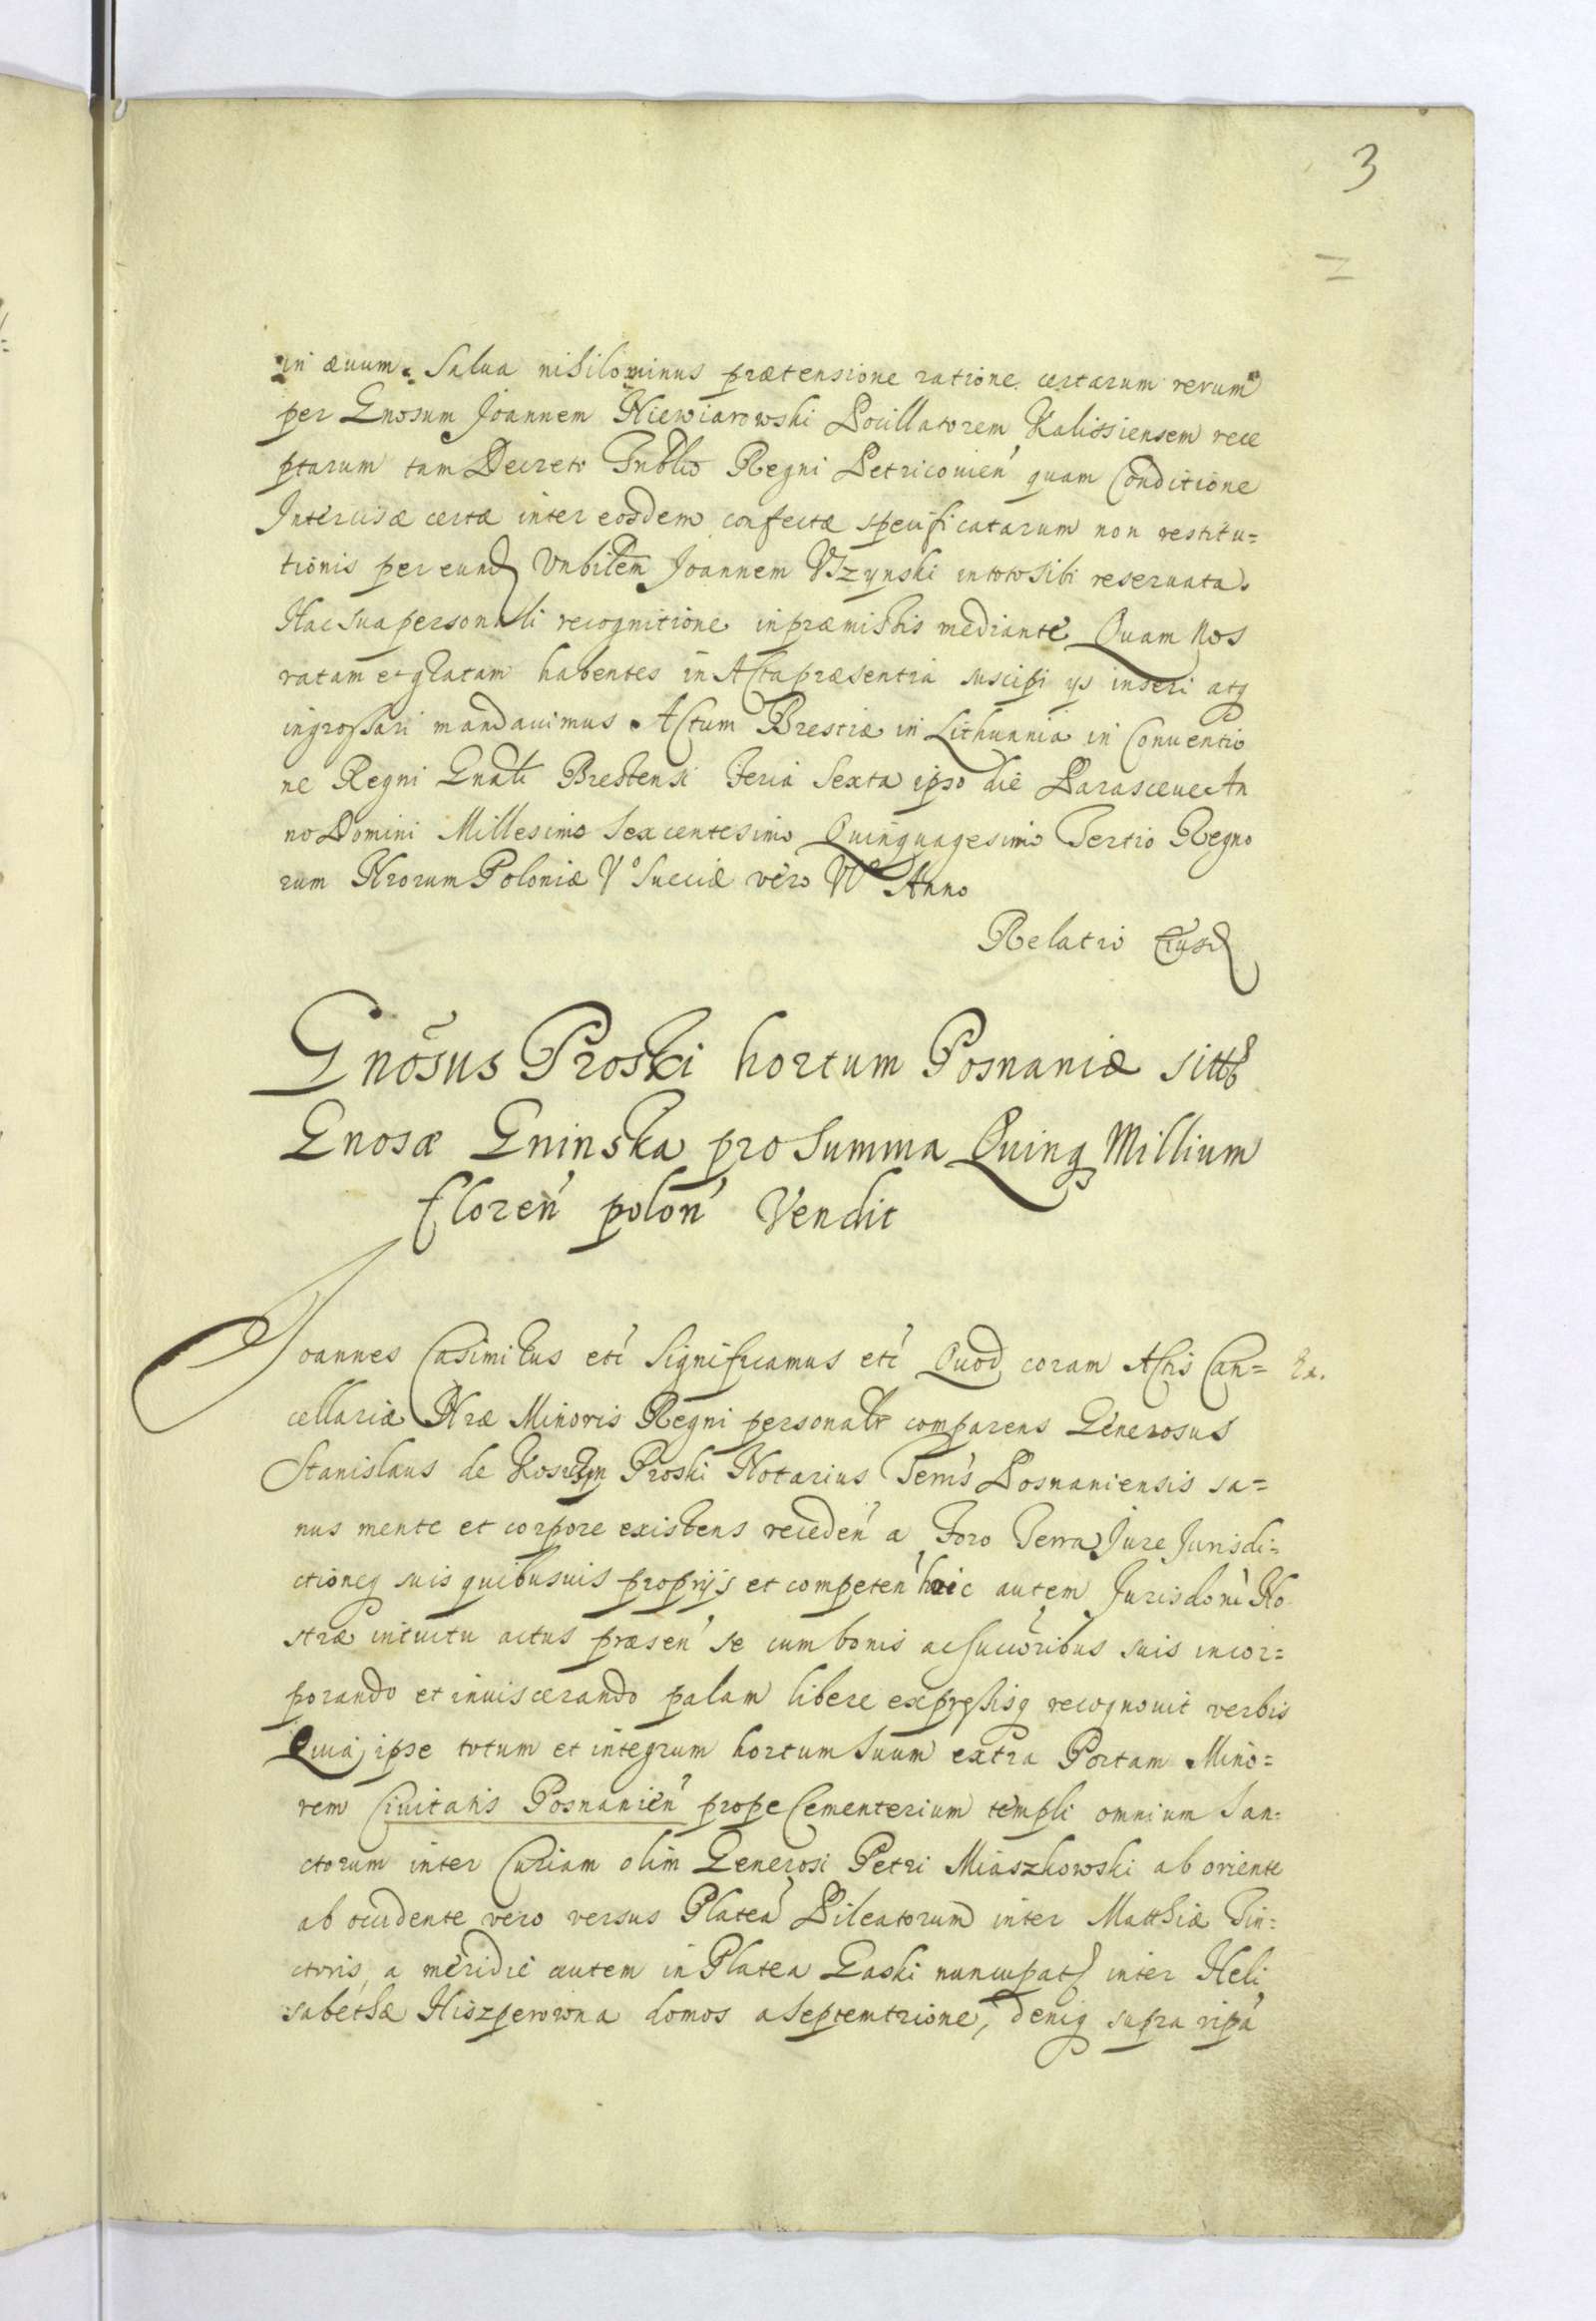 3
in æuum. Salua nihilominus prætensione ratione certarum rerum
per Gnosum Joannem Niewiarowski Pocillatorem Kalissiensem rece
ptarum tam Decreto Tnblis Regni Petricouien' quam Conditione
Intercisæ certæ inter eosdem confectæ specificatarum non restitu=
tionis per eund Vnbilem Joannem Vszynski in toto sibi reseruata.
Hac sua personali recognitione in præmissis mediante Quam Nos
ratam et gratam habentes in Acta præsentia suscipi ys inseri atq
ingrossari mandauimus. Actum Brestiæ in Lithuania in Conuentio
ne Regni Gnali Brestensi Feria Sexta ipso die Parasceue An
no Domini Millesimo Sexcentesimo Quinquagesimo Tertio Regno
rum Nrorum Poloniæ V° Sueciæ vero VI° Anno
Relatio Eiusd
Gnosus Proski hortum Posnaniæ sittum
Gnosæ Gninska pro Summa Quinq Millium
floren' polon' Vendit
Joannes Casimirus etc Significamus etc Quod coram Actis Can=
cellariæ Nræ Minoris Regni personalr comparens Generosus
Stanislaus de Proski Notarius Terris Posnaniensis sa=
nus mente et corpore existens receden' a Foro Terra Jure Jurisdi=
ctioneq suis quibusuis proprijs et competen' huic autem Jurisdoni No
stræ intuitu actus præsen' se cum bonis ac succoribus suis incor=
porando et inuiscerando palam libere expressisq recognouit verbis
Quia ipse totum et integrum hortum Suum extra Portam Mino=
rem Ciuitatis Posnanien' prope Cementerium templi omnium San=
ctorum inter Curiam olim Generosi Petri Miaszkowski ab oriente
ab occidente vero versus Platea' Pileatorum inter Matthiæ Tin=
ctoris, a meridie autem in Platea Gaski nuncupat inter Heli
sabethæ Hiszperowna domos a Septemtrione, deniq supra ripa'